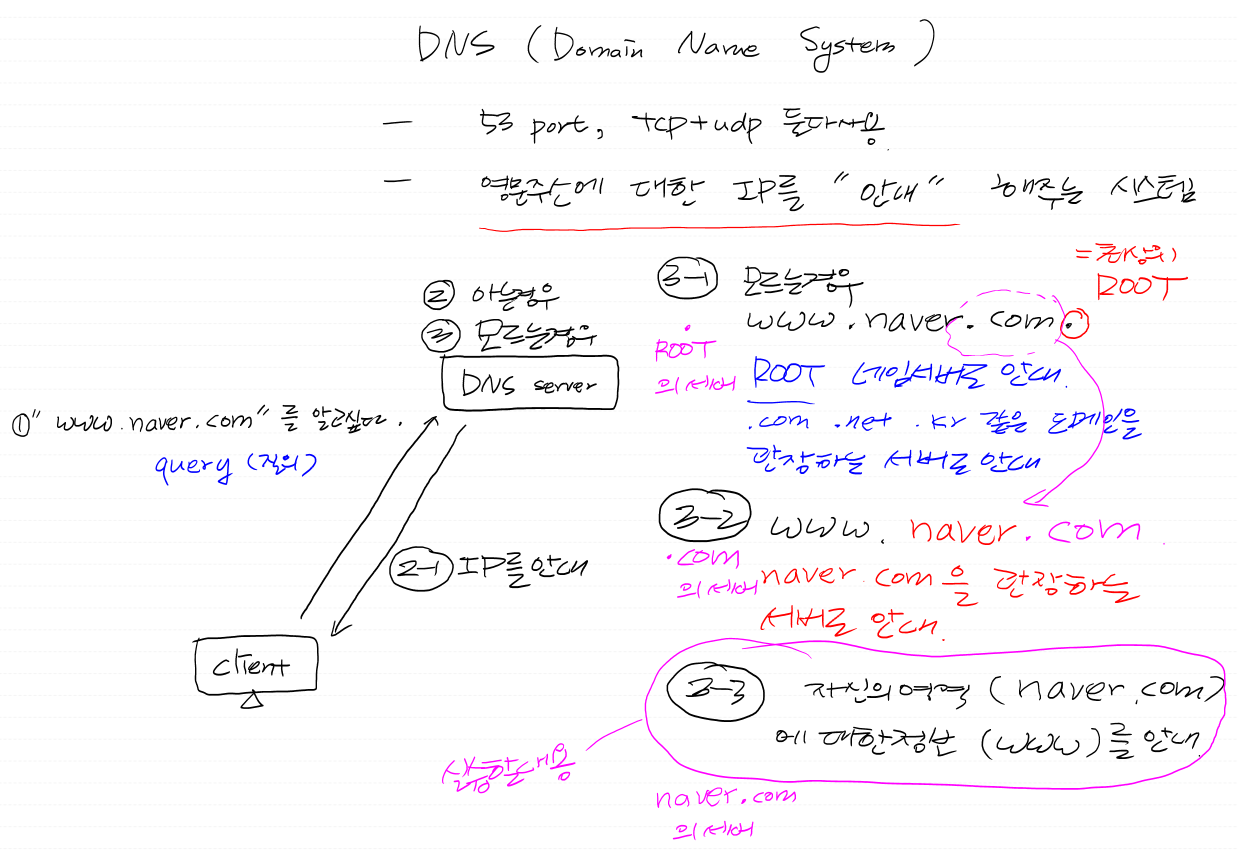 DNS (Domain Name System)
— 53 port, tcp+udp 둘다사용.
— 영문주소에 대한 IP를 "안내" 해주는 시스템
② 아는경우
③ 모르는경우
DNS server
①"www.naver.com"를 알고싶다.
query (질의)
2-1 IP를 안내
client
3-1 모르는경우
= 최상위
ROOT
www.naver.com.
ROOT
의 네버
ROOT 네임서버로 안내.
.com .net .kr 같은 도메인을
관장하는 서버로 안내
3-2 www.naver.com
.com
의 네버
naver.com을 관장하는
서버로 안내.
3-3 자신의영역 (naver.com)
에 대한정보 (www)를 안내.
실습할내용
naver.com
의 네버